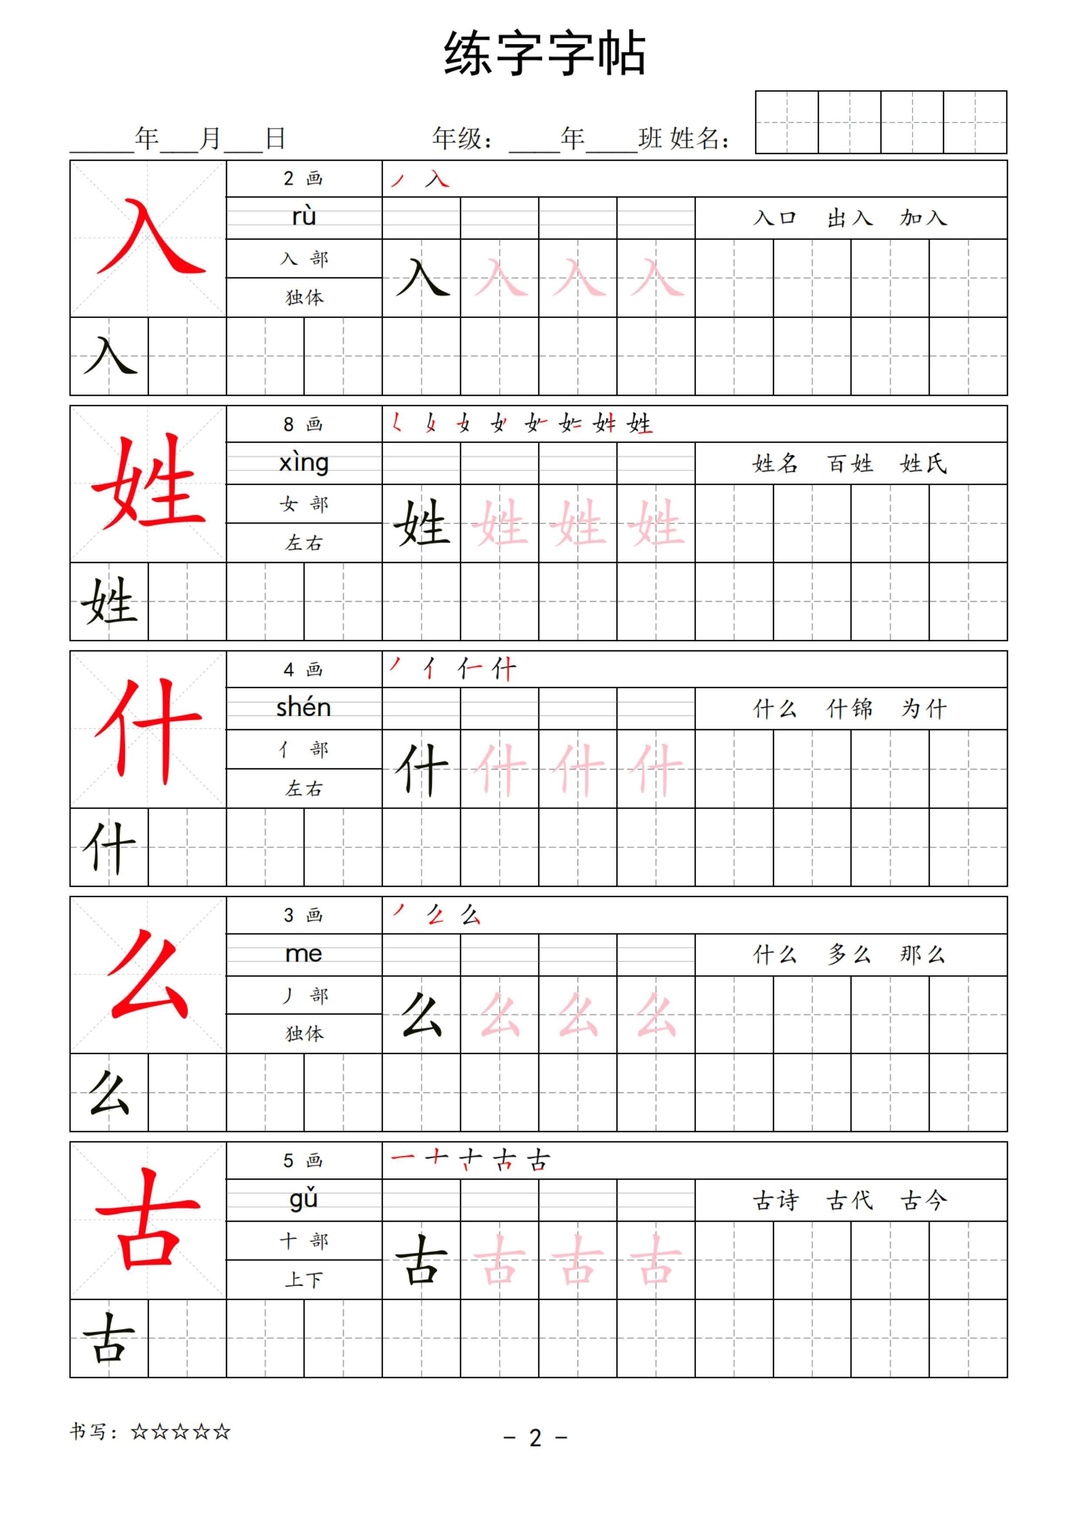 练字字帖
______年___月___日 年级：____年____班 姓名：
2 画
rù
入 部
独体
入口 出入 加入
入 入 入 入 入
入
8 画
xìng
女 部
左右
姓名 百姓 姓氏
姓 姓 姓 姓 姓
姓
4 画
shén
亻 部
左右
什么 什锦 为什
什 什 什 什 什
什
3 画
me
丿 部
独体
什么 多么 那么
么 么 么 么 么
么
5 画
gǔ
十 部
上下
古诗 古代 古今
古 古 古 古 古
古
书写：☆☆☆☆☆
- 2 -